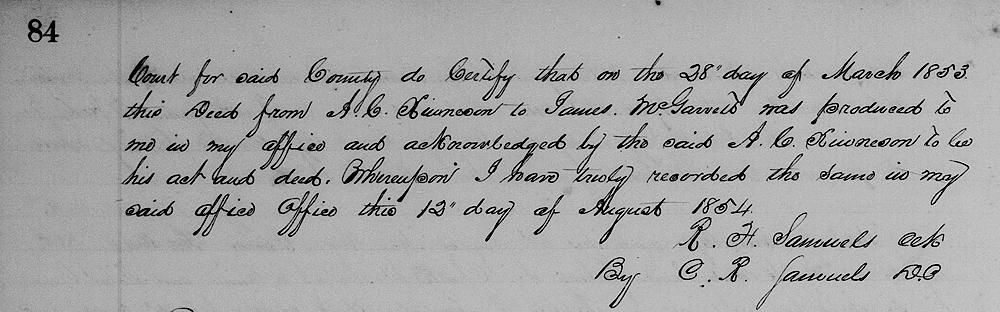 84
Court for said County do Certify that on the 28" day of March 1853.
this Deed from A. C. to James. McGarvets was produced to
me in my office and acknowledged by the said A. C. to be
his act and deed. Whereupon I have truly recorded the same in my
said office Office this 12" day of August 1854.
R. H. Samuels Clk
By C. R. Samuels D.C